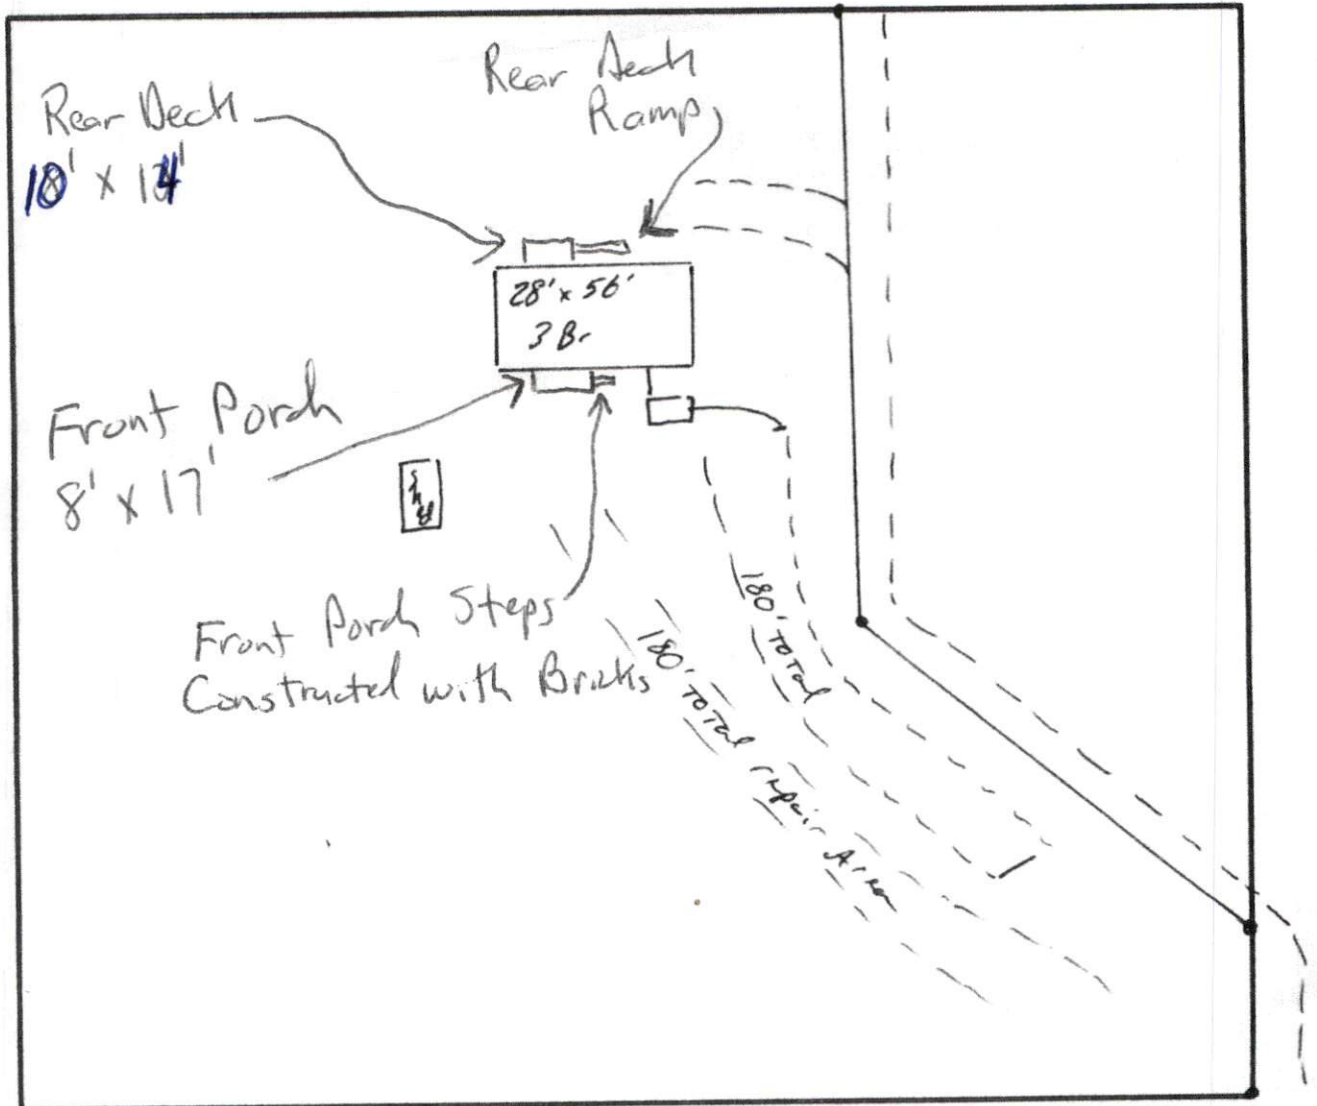 Rear Deck
10' x 14'
Rear Deck
Ramp
28' x 56'
3 Br
Front Porch
8' x 17'
Front Porch Steps
Constructed with Bricks
180' TOTAL
180' TOTAL repair Area